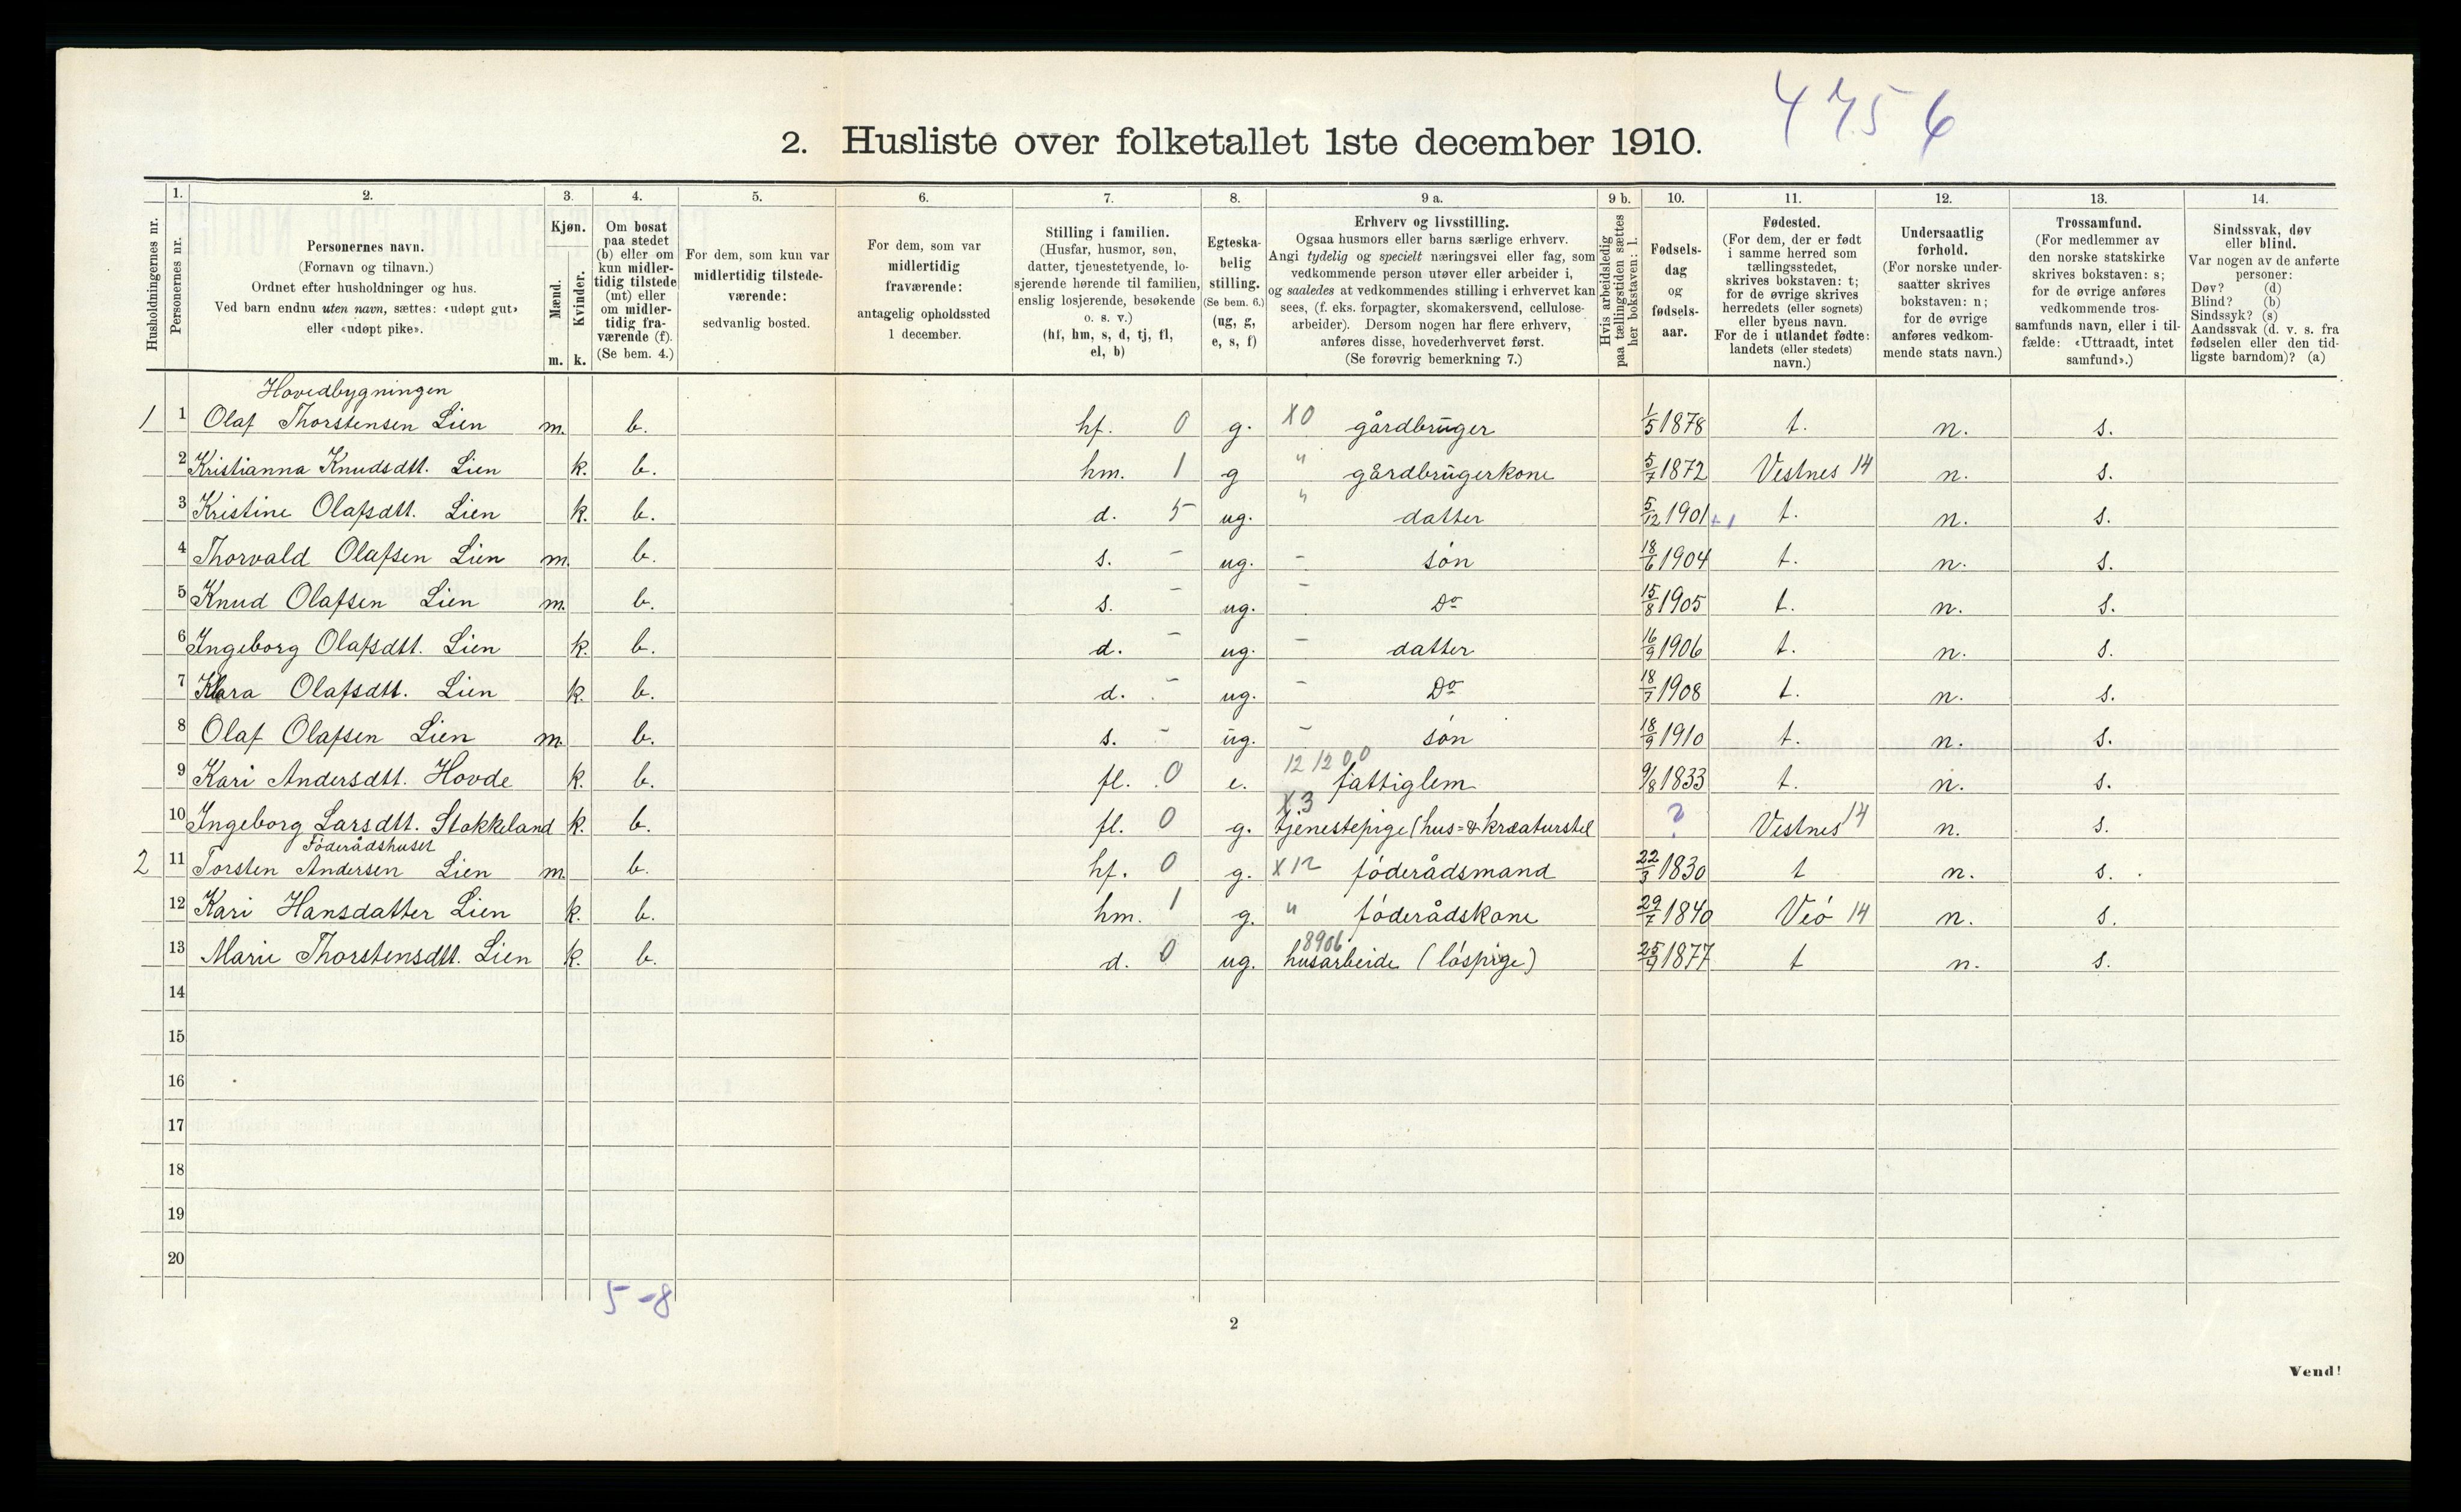 4756
2. Husliste over folketallet 1ste december 1910.
Husholdningernes nr.
1. Personernes nr.
2. Personernes navn. (Fornavn og tilnavn.) Ordnet efter husholdninger og hus. Ved barn endnu uten navn, sættes: «udøpt gut» eller «udøpt pike».
3. Kjøn. Mænd. m. Kvinder. k.
4. Om bosat paa stedet (b) eller om kun midlertidig tilstede (mt) eller om midlertidig fraværende (f). (Se bem. 4.)
5. For dem, som kun var midlertidig tilstedeværende: sedvanlig bosted.
6. For dem, som var midlertidig fraværende: antagelig opholdssted 1 december.
7. Stilling i familien. (Husfar, husmor, søn, datter, tjenestetyende, losjerende hørende til familien, enslig losjerende, besøkende o. s. v.) (hf, hm, s, d, tj, fl, el, b)
8. Egteskabelig stilling. (Se bem. 6.) (ug, g, e, s, f)
9 a. Erhverv og livsstilling. Ogsaa husmors eller barns særlige erhverv. Angi tydelig og specielt næringsvei eller fag, som vedkommende person utøver eller arbeider i, og saaledes at vedkommendes stilling i erhvervet kan sees, (f. eks. forpagter, skomakersvend, cellulosearbeider). Dersom nogen har flere erhverv, anføres disse, hovederhvervet først. (Se forøvrig bemerkning 7.)
9 b. Hvis arbeidsledig paa tællingstiden sættes her bokstaven: l.
10. Fødselsdag og fødselsaar.
11. Fødested. (For dem, der er født i samme herred som tællingsstedet, skrives bokstaven: t; for de øvrige skrives herredets (eller sognets) eller byens navn. For de i utlandet fødte: landets (eller stedets) navn.)
12. Undersaatlig forhold. (For norske undersaatter skrives bokstaven: n; for de øvrige anføres vedkommende stats navn.)
13. Trossamfund. (For medlemmer av den norske statskirke skrives bokstaven: s; for de øvrige anføres vedkommende trossamfunds navn, eller i tilfælde: «Uttraadt, intet samfund».)
14. Sindssvak, døv eller blind. Var nogen av de anførte personer: Døv? (d) Blind? (b) Sindssyk? (s) Aandssvak (d. v. s. fra fødselen eller den tidligste barndom)? (a)
Hovedbygningen
1 1 Olaf Thorstensen Lien m. b. hf. 0 g. X0 gårdbruger 1/5 1878 t. n. s.
2 Kristianna Knudsdtt. Lien k. b. hm. 1 g " gårdbrugerkone 5/7 1872 Vestnes 14 n. s.
3 Kristine Olafsdtt. Lien k. b. d. 5 ug. " datter 5/12 1901 +1 t. n. s.
4 Thorvald Olafsen Lien m. b. s. - ug. - søn 18/6 1904 t. n. s.
5 Knud Olafsen Lien m. b. s. - ug. - Do 15/8 1905 t. n. s.
6 Ingeborg Olafsdtt. Lien k. b. d. - ug. - datter 16/9 1906 t. n. s.
7 Klara Olafsdtt. Lien k. b. d. - ug. - Do 18/7 1908 t. n. s.
8 Olaf Olafsen Lien m. b. s. - ug. - søn 18/9 1910 t. n. s.
9 Kari Andersdtt. Hovde k. b. fl. 0 e. 12 12 00 fattiglem 9/8 1833 t. n. s.
10 Ingeborg Larsdtt. Stokkeland k. b. fl. 0 g. X3 tjenestepige (hus= & kreaturstel ? Vestnes 14 n. s.
Føderådshuset
2 11 Torsten Andersen Lien m. b. hf. 0 g. X12 føderådsmand 22/3 1830 t n. s.
12 Kari Hansdatter Lien k. b. hm. 1 g. " føderådskone 29/7 1840 Veø 14 n. s.
13 Marie Thorstensdtt. Lien k. b. d. 0 ug. 8906 husarbeide (løspige) 25/9 1877 t n. s.
14
15
16
17
18
19
20
5-8
2
Vend!